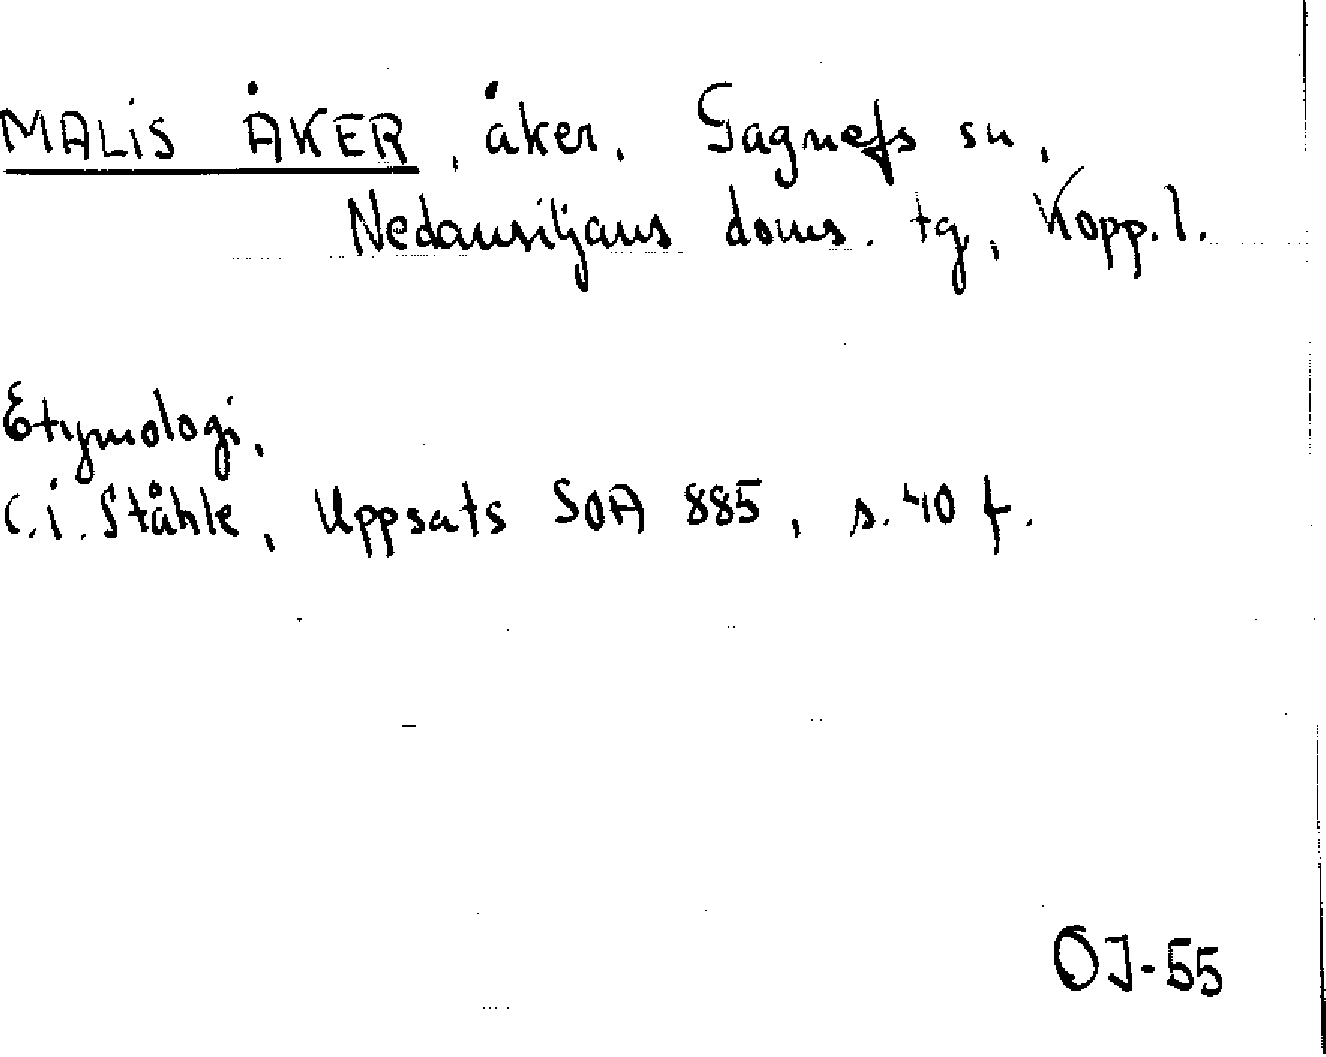 MALIS ÅKER, åker, Gagnefs sn,
Nedansiljans doms. tg, Kopp. l.
Etymologi,
C.I. Ståhle, Uppsats SOA 885, s. 40 f.
OJ-55